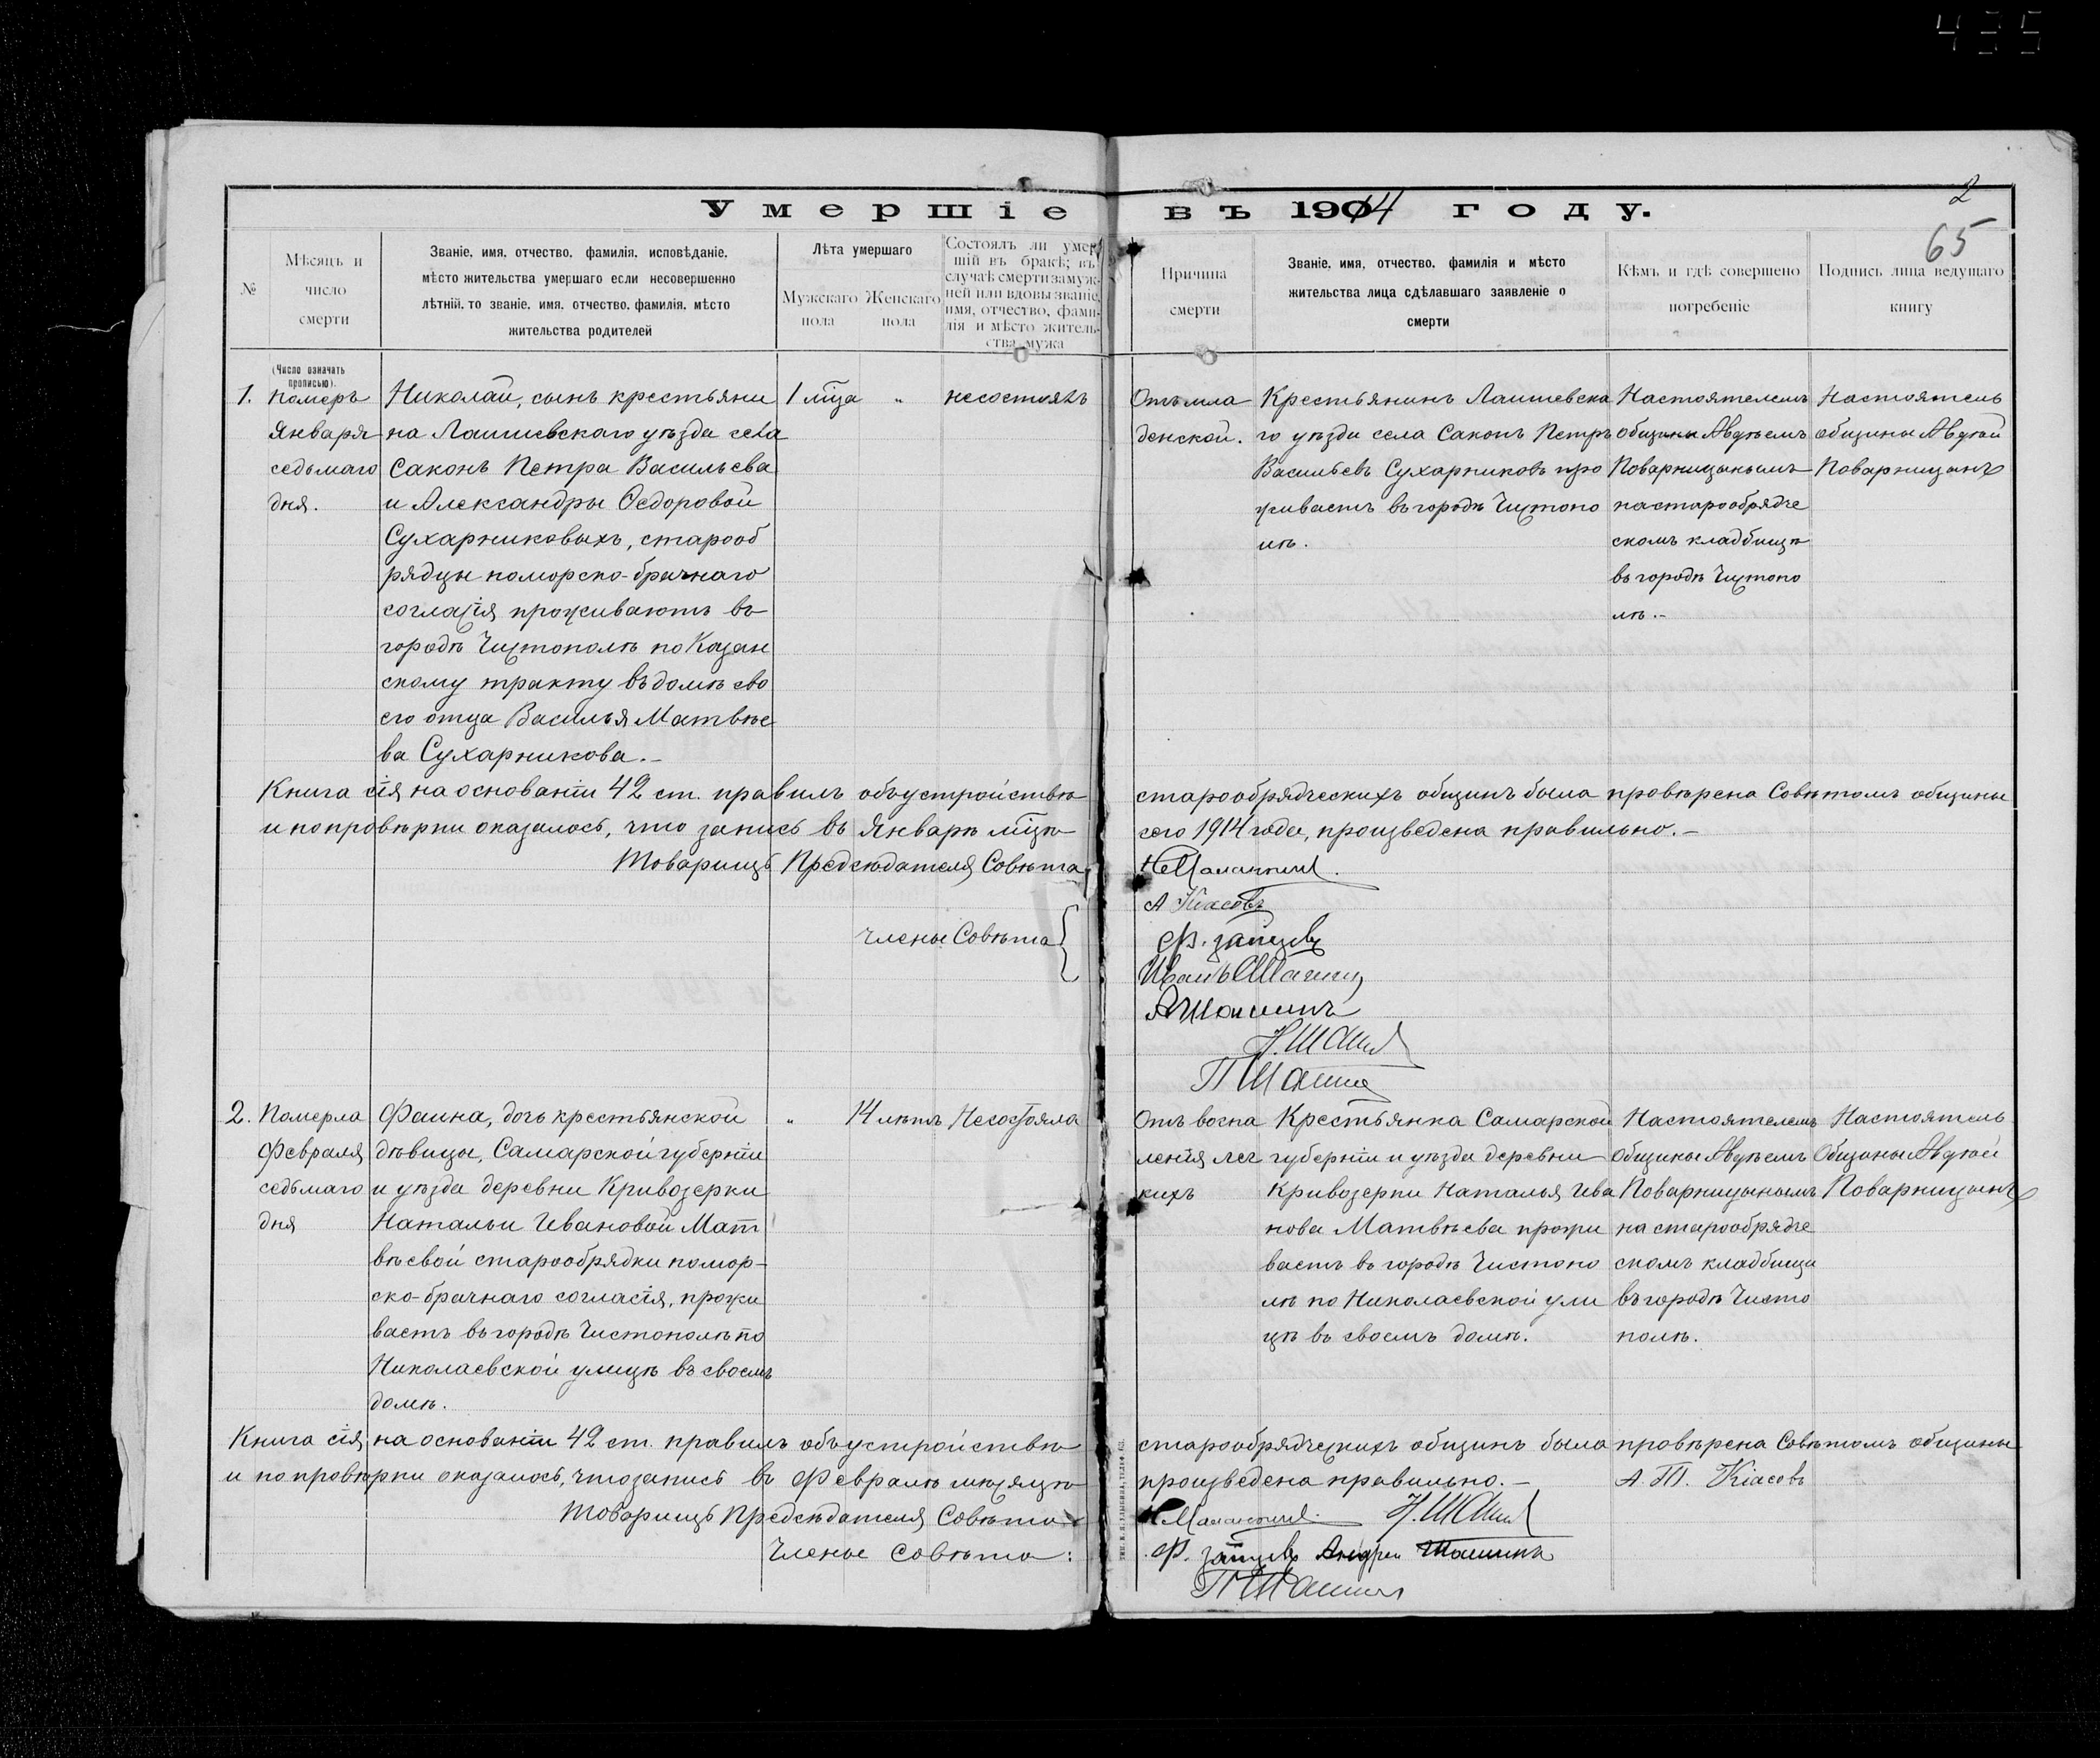 435
2
65
Умершіе въ 1904 14 году.
№
Мѣсяцъ и
число
смерти
Званіе, имя, отчество, фамилія, исповѣданіе,
мѣсто жительства умершаго если несовершенно
лѣтній, то званіе, имя, отчество, фамилія, мѣсто
жительства родителей
Лѣта умершаго
Мужскаго
пола
Женскаго
пола
Состоялъ ли умер
шій въ бракѣ; въ
случаѣ смерти замуж-
ней или вдовы званіе,
имя, отчество, фами-
лія и мѣсто житель-
ства мужа
Причина
смерти
Званіе, имя, отчество, фамилія и мѣсто
жительства лица сдѣлавшаго заявленіе о
смерти
Кѣмъ и гдѣ совершено
погребеніе
Подпись лица ведущаго
книгу
(Число означать
прописью).
1.
Померъ
Января
седьмаго
дня.
Николай, сынъ крестьяни
на Лаишевскаго уѣзда села
Саконъ Петра Васильева
и Александры Ѳедоровой
Сухарниковыхъ, старооб
рядцы поморско-брачнаго
согласія проживаютъ въ
городѣ Чистополѣ по Казан
скому тракту въ домѣ сво
его отца Василья Матвѣе
ва Сухарникова.-
1 мца
"
несостоялъ
Отъ мла
денской.
Крестьянинъ Лаишевска
го уѣзда села Саконъ Петръ
Васильевъ Сухарниковъ про
живаетъ въ городѣ Чистопо
лѣ.
Настоятелемъ
общины Авдѣемъ
Поварницынымъ
на старообрядче
скомъ кладбищѣ
въ городѣ Чистопо
лѣ.-
Настоятель
общины Авдѣй
Поварницынъ
Книга сія на основаніи 42 ст. правилъ объ устройствѣ старообрядческихъ общинъ была провѣрена Совѣтомъ общины
и по провѣрки оказалось, что запись въ Январѣ мцѣ сего 1914 года, произведена правильно.-
Товарищъ Предсѣдателя Совѣта
Члены Совѣта
А Кіасовъ
Ф. Зайцевъ
Иванъ Шашин
А Шашинъ
Н. Шашин
П Шашин
2.
Померла
Февраля
седьмаго
дня
Фаина, дочь крестьянской
дѣвицы, Самарской губерніи
и уѣзда деревни Кривозерки
Натальи Ивановой Мат
вѣевой старообрядки помор-
ско-брачнаго согласія, прожи
ваетъ въ городѣ Чистополѣ по
Николаевской улицѣ въ своемъ
домѣ.
"
14 лѣтъ
Несостояла
Отъ воспа
ленія лег
кихъ
Крестьянка Самарской
губерніи и уѣзда деревни
Кривозерки Наталья Ива
нова Матвѣева прожи
ваетъ въ городѣ Чистопо
лѣ по Николаевской ули
цѣ въ своемъ домѣ.
Настоятелемъ
Общины Авдѣемъ
Поварницынымъ
на старообрядче
скомъ кладбищи
въ городѣ Чисто
полѣ.
Настоятель
Общины Авдѣй
Поварницынъ
Книга сія, на основаніи 42 ст. правилъ объ устройствѣ старообрядческихъ общинъ была провѣрена Совѣтомъ общины
и по провѣрки оказалось, что запись въ Февралѣ мѣсяцѣ произведена правильно.-
А. П. Кіасовъ
Товарищъ Предсѣдателя Совѣта
Н. Шашин
Члены Совѣта:
Ф. Зайцевъ Андрей Шашинъ
П Шашин